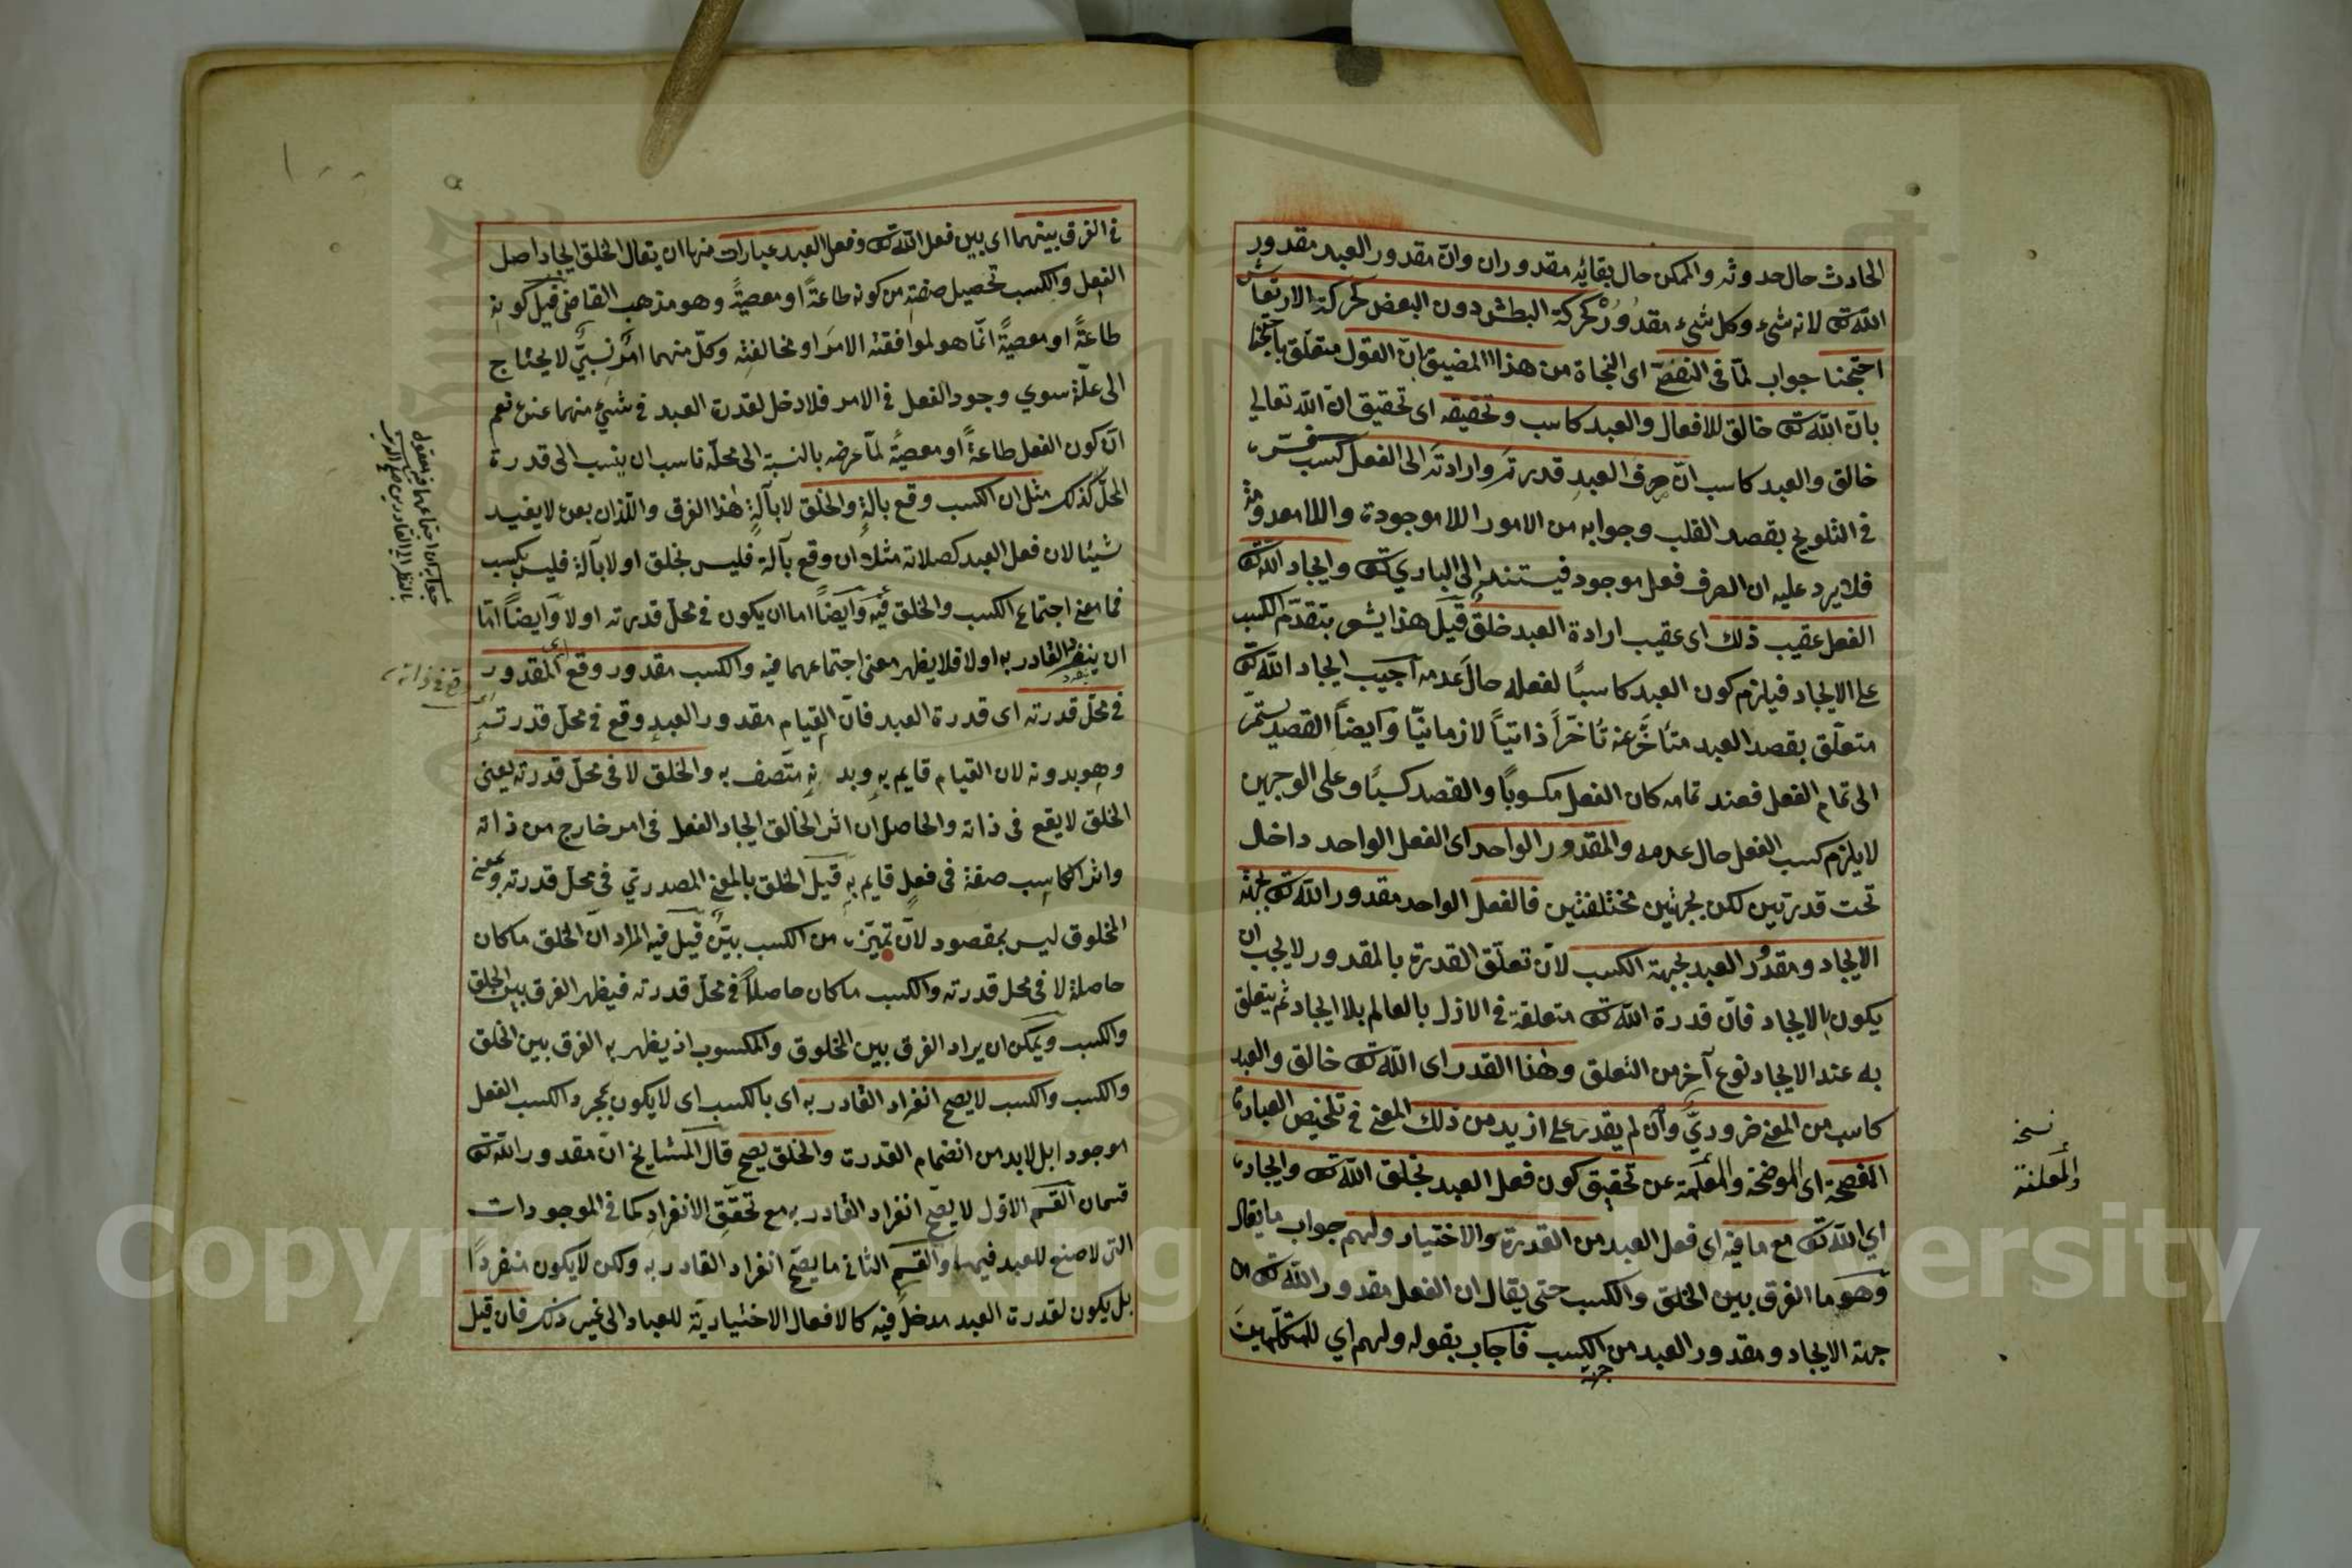 الحادث حال حدوثه والممكن حال بقائه مقدوران وان مقدور العبد مقدور
الله تع لانه شيء وكل شيء مقدور كحركة البطش دون البعض كحركة الارتعاش
احتجنا جواب لمّا في التفصّي اى النجاة من هذا المضيق انّ القول متعلّق باحتجنا
بانّ الله تع خالق للافعال والعبد كاسب وتحقيقه اى تحقيق ان الله تعالي
خالق والعبد كاسب انّ صرف العبد قدرته وارادته الى الفعل كسب
في التلويح بقصد القلب وجوابه من الامور اللا موجودة واللا معدومة
فلا يرد عليه ان الصرف فعل موجود فيستند الى الباري تع وايجاد الله تع
الفعل عقيب ذلك اى عقيب ارادة العبد خلق قيل هذا يشعر بتقدّم الكسب
على الايجاد فيلزم كون العبد كاسبًا لفعله حال عدمه اجيب ايجاد الله تع
متعلّق بقصد العبد متأخّر عنه تأخّرًا ذاتيًا لا زمانيًا وايضًا القصد يستمرّ
الى تمام الفعل فعند تمامه كان الفعل مكسوبًا والقصد كسبًا وعلى الوجهين
لا يلزم كسب الفعل حال عدمه والمقدور الواحد اى الفعل الواحد داخل
تحت قدرتين لكن بجهتين مختلفتين فالفعل الواحد مقدور الله تع بجهة
الايجاد ومقدور العبد بجهة الكسب لانّ تعلّق القدرة بالمقدور لا يجب ان
يكون بالايجاد فانّ قدرة الله تع متعلقة في الازل بالعالم بلا ايجاد ثم يتعلق
به عند الايجاد نوع آخر من التعلق وهذا القدر اى الله تع خالق والعبد
كاسب من المعنى ضروريّ وان لم يقدر على ازيد من ذلك المعنى في تلخيص العبارة
المفصحة اى الموضحة والمعلمة عن تحقيق كون فعل العبد بخلق الله تع وايجاده
اي الله تع مع ما فيه اى فعل العبد من القدرة والاختيار ولهم جواب ما يقال
وهو ما الفرق بين الخلق والكسب حتى يقال ان الفعل مقدور الله تع من
جهة الايجاد ومقدور العبد من الكسب فاجاب بقوله ولهم اي للمتكلّمين
جهة
نسخة
والمعلنة
في الفرق بينهما اى بين فعل الله تع وفعل العبد عبارات منها ان يقال الخلق ايجاد اصل
الفعل والكسب تحصيل صفته من كونه طاعةً او معصيةً وهو مذهب القاضي قيل كونه
طاعةً او معصيةً انّما هو لموافقته الامر او مخالفته وكلّ منهما امر نسبيّ لا يحتاج
الى علّة سوي وجود الفعل في الامر فلا دخل لقدرة العبد في شيء منهما عنده نعم
انّ كون الفعل طاعةً او معصيةً لمّا عرضه بالنسبة الى محلّه ناسب ان ينسب الى قدرة
المحلّ كذلك مثل ان الكسب وقع بآلةٍ والخلق لا بآلةٍ هذا الفرق واللّذان بعده لا يفيد
شيئا لان فعل العبد كصلاته مثلا ان وقع بآلة فليس بخلق او لا بآلة فليس بكسب
فما معنى اجتماع الكسب والخلق فيه وايضًا اما ان يكون في محلّ قدرته او لا وايضًا امّا
ان ينفرد القادر به او لا فلا يظهر معنى اجتماعهما فيه والكسب مقدور وقع المقدور
في محلّ قدرته اى قدرة العبد فانّ القيام مقدور العبد وقع في محلّ قدرته
وهو بدونه لان القيام قايم به وبدنه متّصف به والخلق لا في محلّ قدرته يعنى
الخلق لا يقع في ذاته والحاصل ان اثر الخالق ايجاد الفعل في امر خارج من ذاته
واثر الكاسب صفة في فعل قايم به قيل الخلق بالمعنى المصدري في محلّ قدرته وبمعنى
المخلوق ليس بمقصود لانّ تميّزه من الكسب بيّن قيل فيه المراد انّ الخلق ما كان
حاصلة لا في محل قدرته والكسب ما كان حاصلاً في محلّ قدرته فيظهر الفرق بين الخلق
والكسب ويمكن ان يراد الفرق بين المخلوق والمكسوب اذ يظهر به الفرق بين الخلق
والكسب والكسب لا يصح انفراد القادر به اى بالكسب اى لا يكون بمجرد الكسب الفعل
موجودا بل لا بد من انضمام القدرة والخلق يصح قال المشايخ انّ مقدور الله تع
قسمان القسم الاوّل لا يصحّ انفراد القادر به مع تحقّق الانفراد كما في الموجودات
التى لا صنع للعبد فيها والقسم الثاني ما يصحّ انفراد القادر به ولكن لا يكون منفردًا
بل يكون لقدرة العبد مدخل فيه كالافعال الاختيارية للعباد الى غير ذلك فان قيل